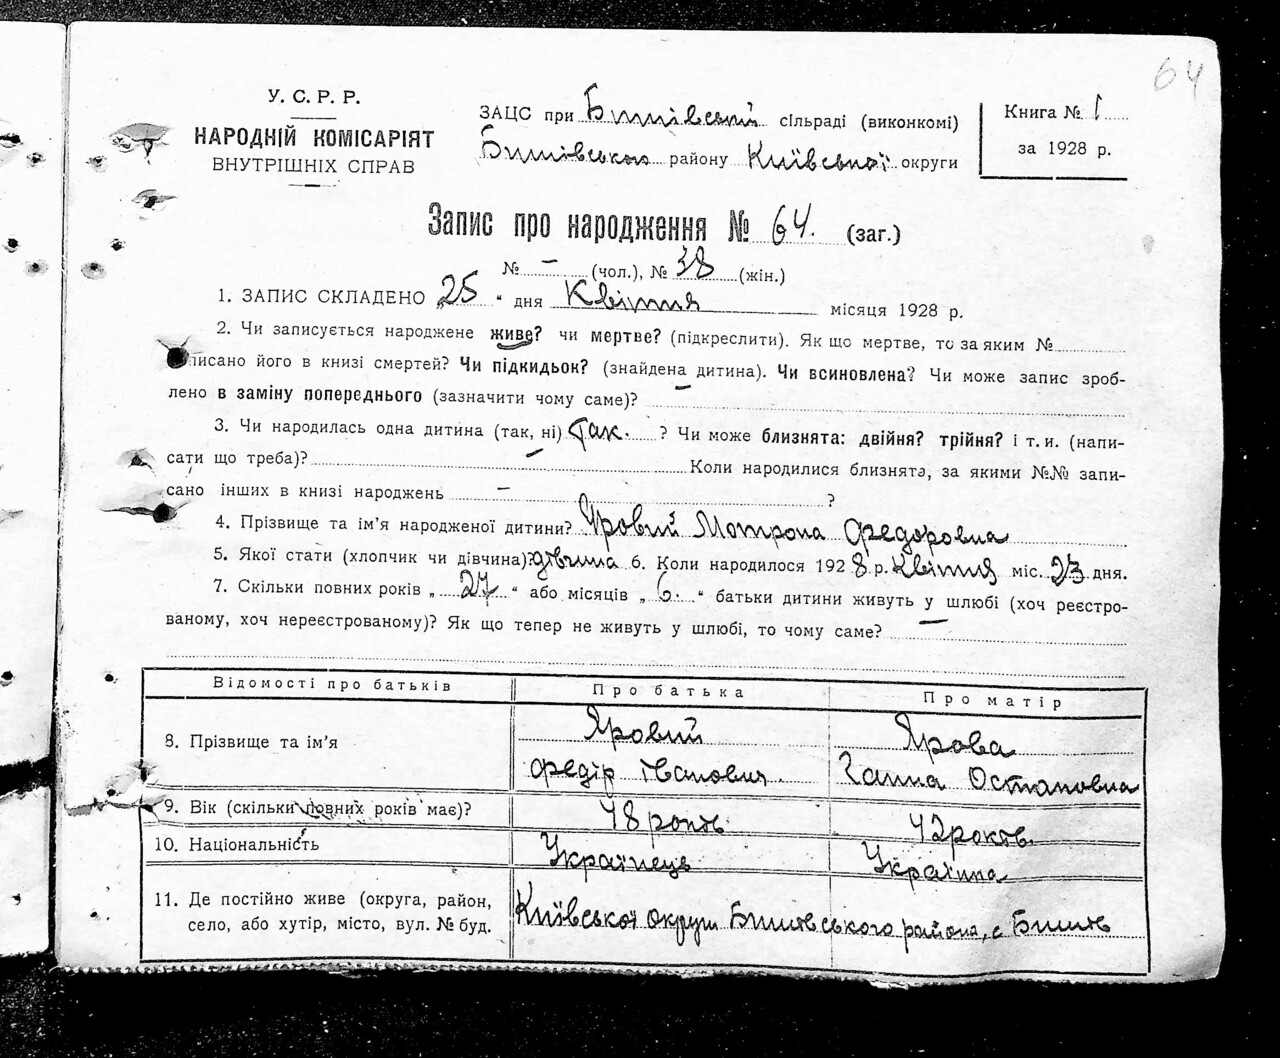 64
У. С. Р. Р.
НАРОДНІЙ КОМІСАРІЯТ
ВНУТРІШНІХ СПРАВ
ЗАЦС при Бишівський сільраді (виконкомі)
Бишівського району Київської округи
Книга № 1
за 1928 р.
Запис про народження № 64. (заг.)
№ – (чол.), № 38 (жін.)
1. ЗАПИС СКЛАДЕНО „25“ дня Квітня місяця 1928 р.
2. Чи записується народжене живе? чи мертве? (підкреслити). Як що мертве, то за яким №
писано його в книзі смертей? Чи підкидьок? (знайдена дитина). Чи всиновлена? Чи може запис зроб-
лено в заміну попереднього (зазначити чому саме)? –
3. Чи народилась одна дитина (так, ні) так. ? Чи може близнята: двійня? трійня? і т. и. (напи-
сати що треба)? – Коли народилися близнята, за якими №№ запи-
сано інших в книзі народжень – ?
4. Прізвище та ім’я народженої дитини? Яровий Мотрона Федоровна
5. Якої стати (хлопчик чи дівчина)? дівчина 6. Коли народилося 1928 р. Квітня міс. 23 дня.
7. Скільки повних років „27“ або місяців „6.“ батьки дитини живуть у шлюбі (хоч реєстро-
ваному, хоч нереєстрованому)? Як що тепер не живуть у шлюбі, то чому саме? –
Відомості про батьків Про батька Про матір
8. Прізвище та ім’я Яровий Ярова
Федір Іванович Ганна Остаповна
9. Вік (скільки повних років має)? 48 років 42 років.
10. Національність Українець Українка
11. Де постійно живе (округа, район,
село, або хутір, місто, вул. № буд. Київської округи Бишівського района, с Бишів